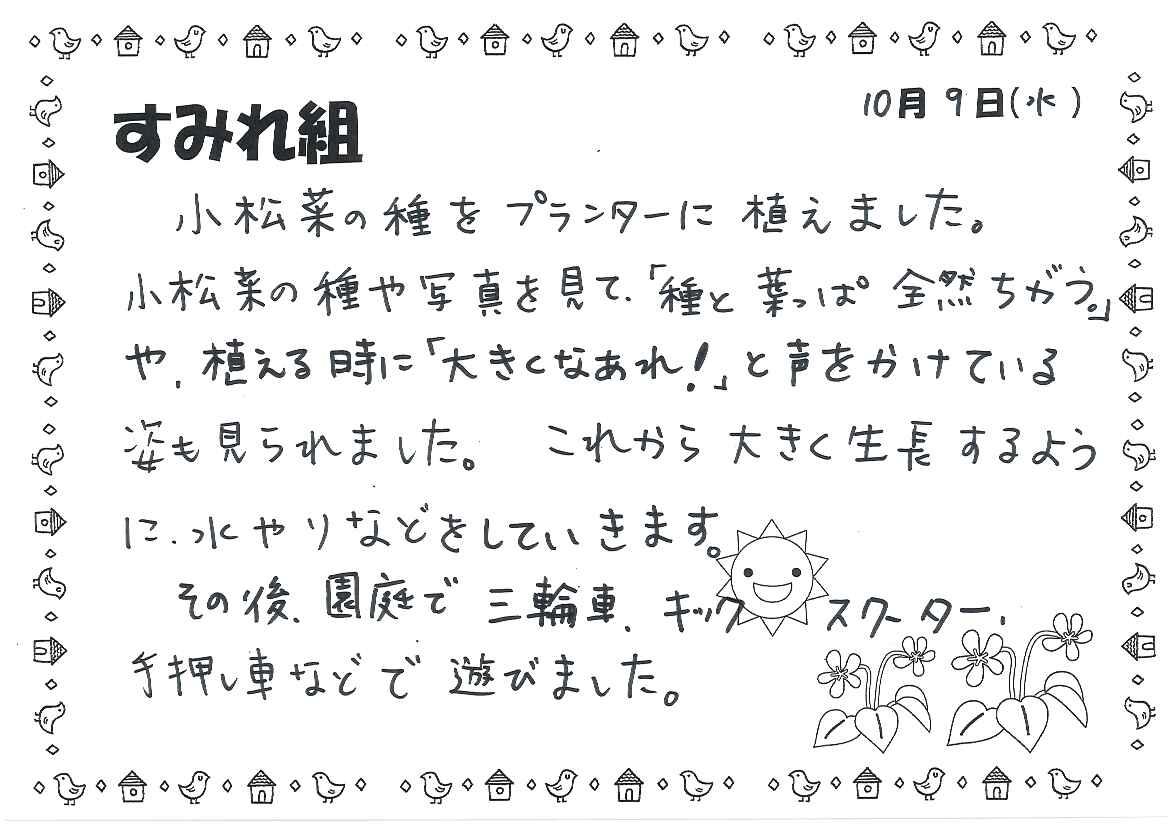 10月9日(水)
すみれ組
小松菜の種をプランターに植えました。
小松菜の種や写真を見て、「種と葉っぱ全然ちがう。」
や、植える時に「大きくなあれ!」と声をかけている
姿も見られました。これから大きく生長するよう
に、水やりなどをしていきます。
その後、園庭で三輪車、キックスクーター、
手押し車などで遊びました。